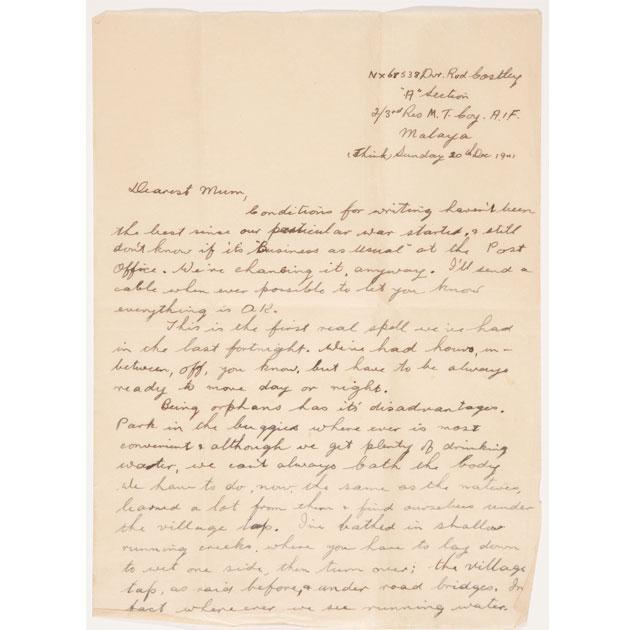 NX68538 Dvr. Rod Costley
"A" Section
2/3rd Res M.T. Coy. A.I.F.
Malaya
(Think) Sunday 20th Dec 1941
Dearest Mum,
Conditions for writing haven't been
the best since our particular war started, & still
don't know if its "Business as Usual" at the Post
Office. We're chancing it, anyway. I'll send a
cable when ever possible to let you know
everything is O.K.
This is the first real spell we've had
in the last fortnight. We've had hours, in-
between, off, you know, but have to be always
ready to move day or night.
Being orphans has it's disadvantages.
Park in the buggies where ever is most
convenient & although we get plenty of drinking
water, we can't always bath the body
We have to do, now, the same as the natives,
learned a lot from them & find ourselves under
the village tap. I've bathed in shallow
running creeks, where you have to lay down
to wet one side, then turn over; the village
tap, as said before, & under road bridges. In
fact where ever we see running water.